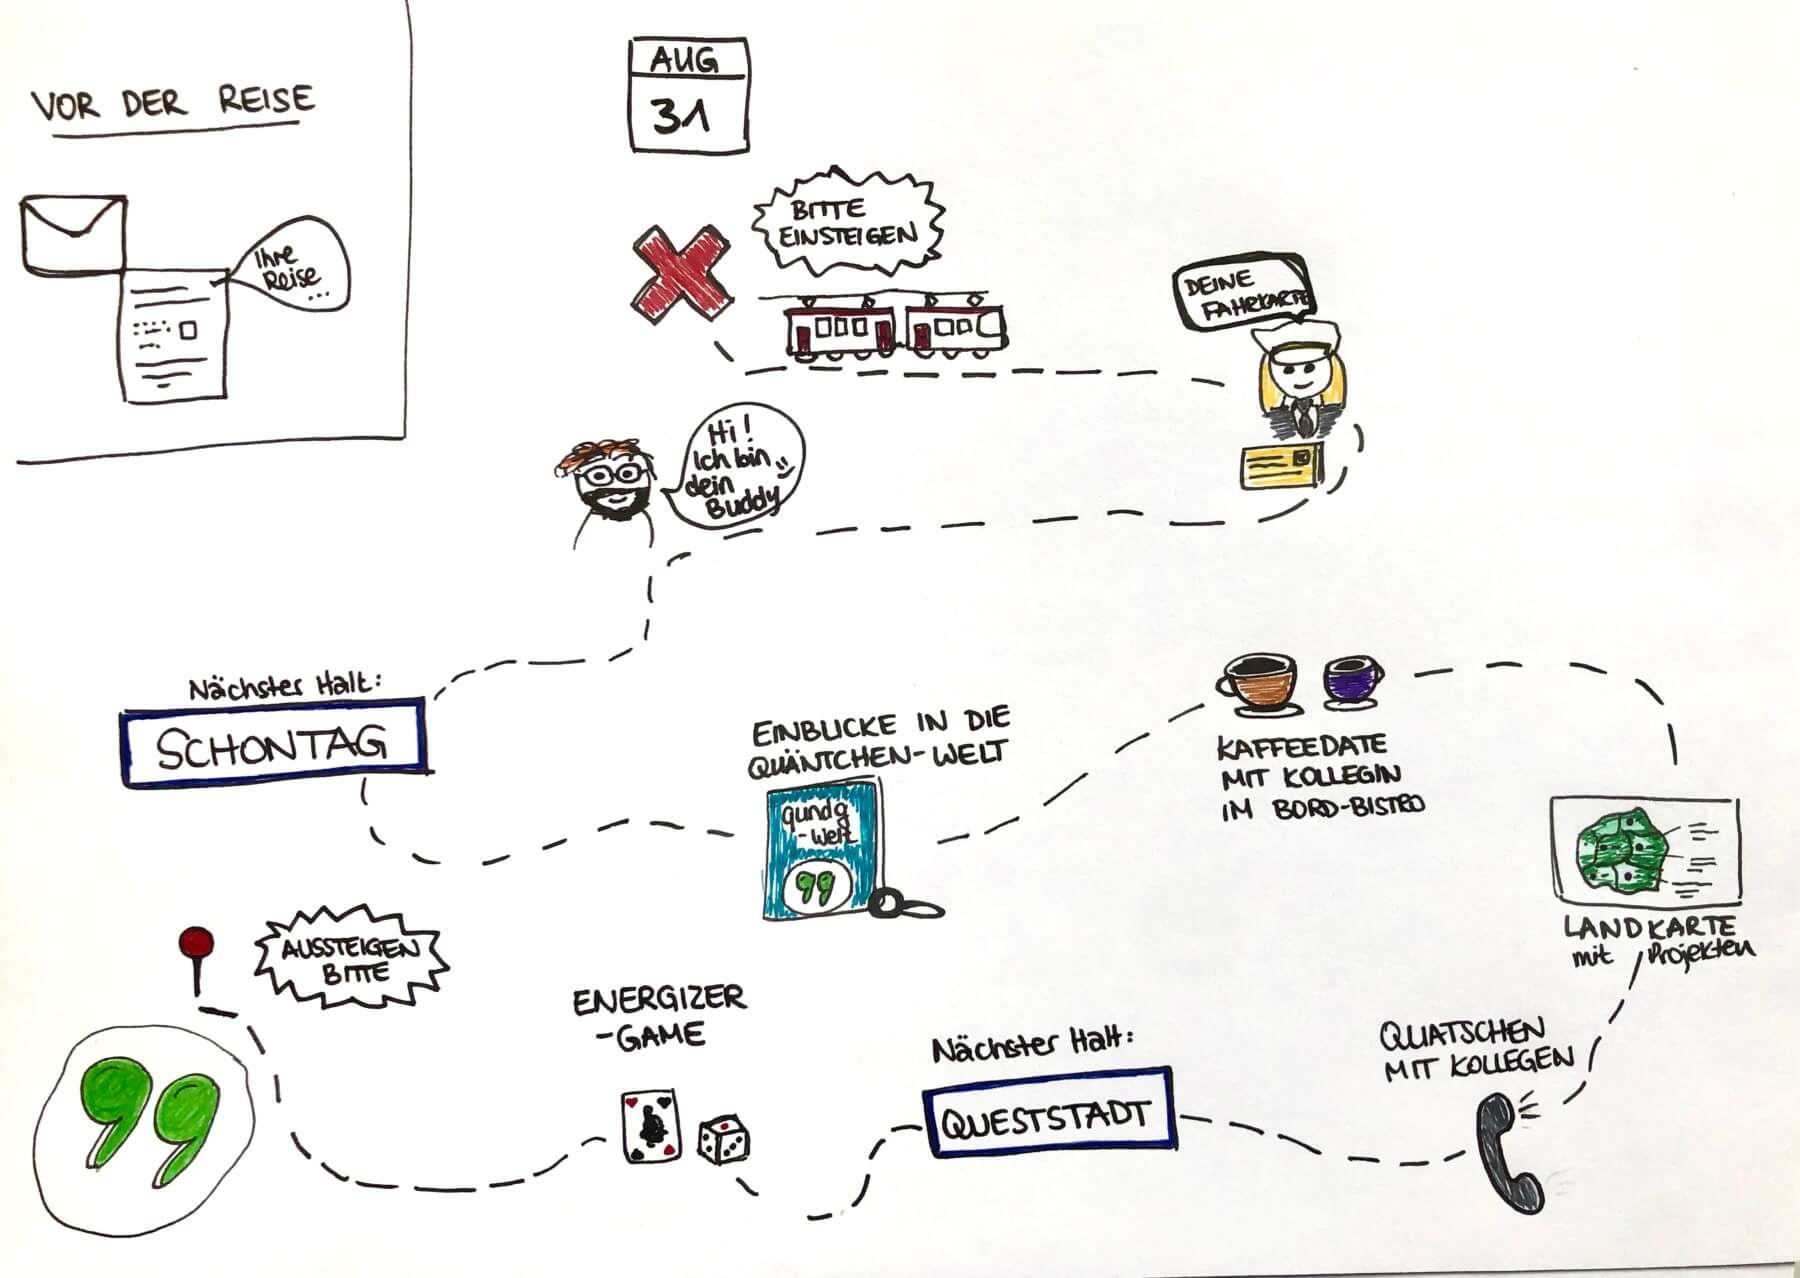 VOR DER REISE
Ihre
Reise
...
AUG
31
BITTE
EINSTEIGEN
DEINE
FAHRKARTE
Hi!
Ich bin
dein
Buddy
Nächster Halt:
SCHONTAG
EINBLICKE IN DIE
QUÄNTCHEN-WELT
qundg
-welt
KAFFEEDATE
MIT KOLLEGIN
IM BORD-BISTRO
LANDKARTE
mit Projekten
QUATSCHEN
MIT KOLLEGEN
Nächster Halt:
QUESTSTADT
ENERGIZER
-GAME
AUSSTEIGEN
BITTE